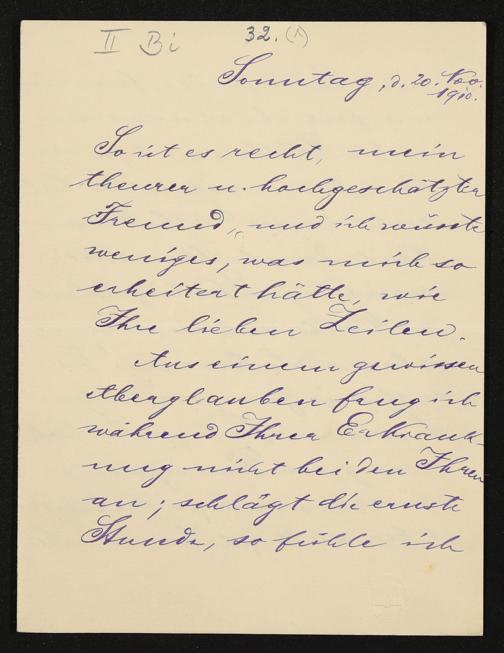 II Bi
32. (A)
Sonntag, d. 20. Nov.
1910.
So ist es recht, mein
theurer u. hochgeschätzter
Freund, und ich wüsste
weniges, was mich so
erheitert hätte, wie
Ihre lieben Zeilen.
Aus einem gewissen
Aberglauben frug ich
während Ihrer Erkrank-
ung nicht bei den Ihren
an; schlägt die ernste
Stunde, so fühle ich